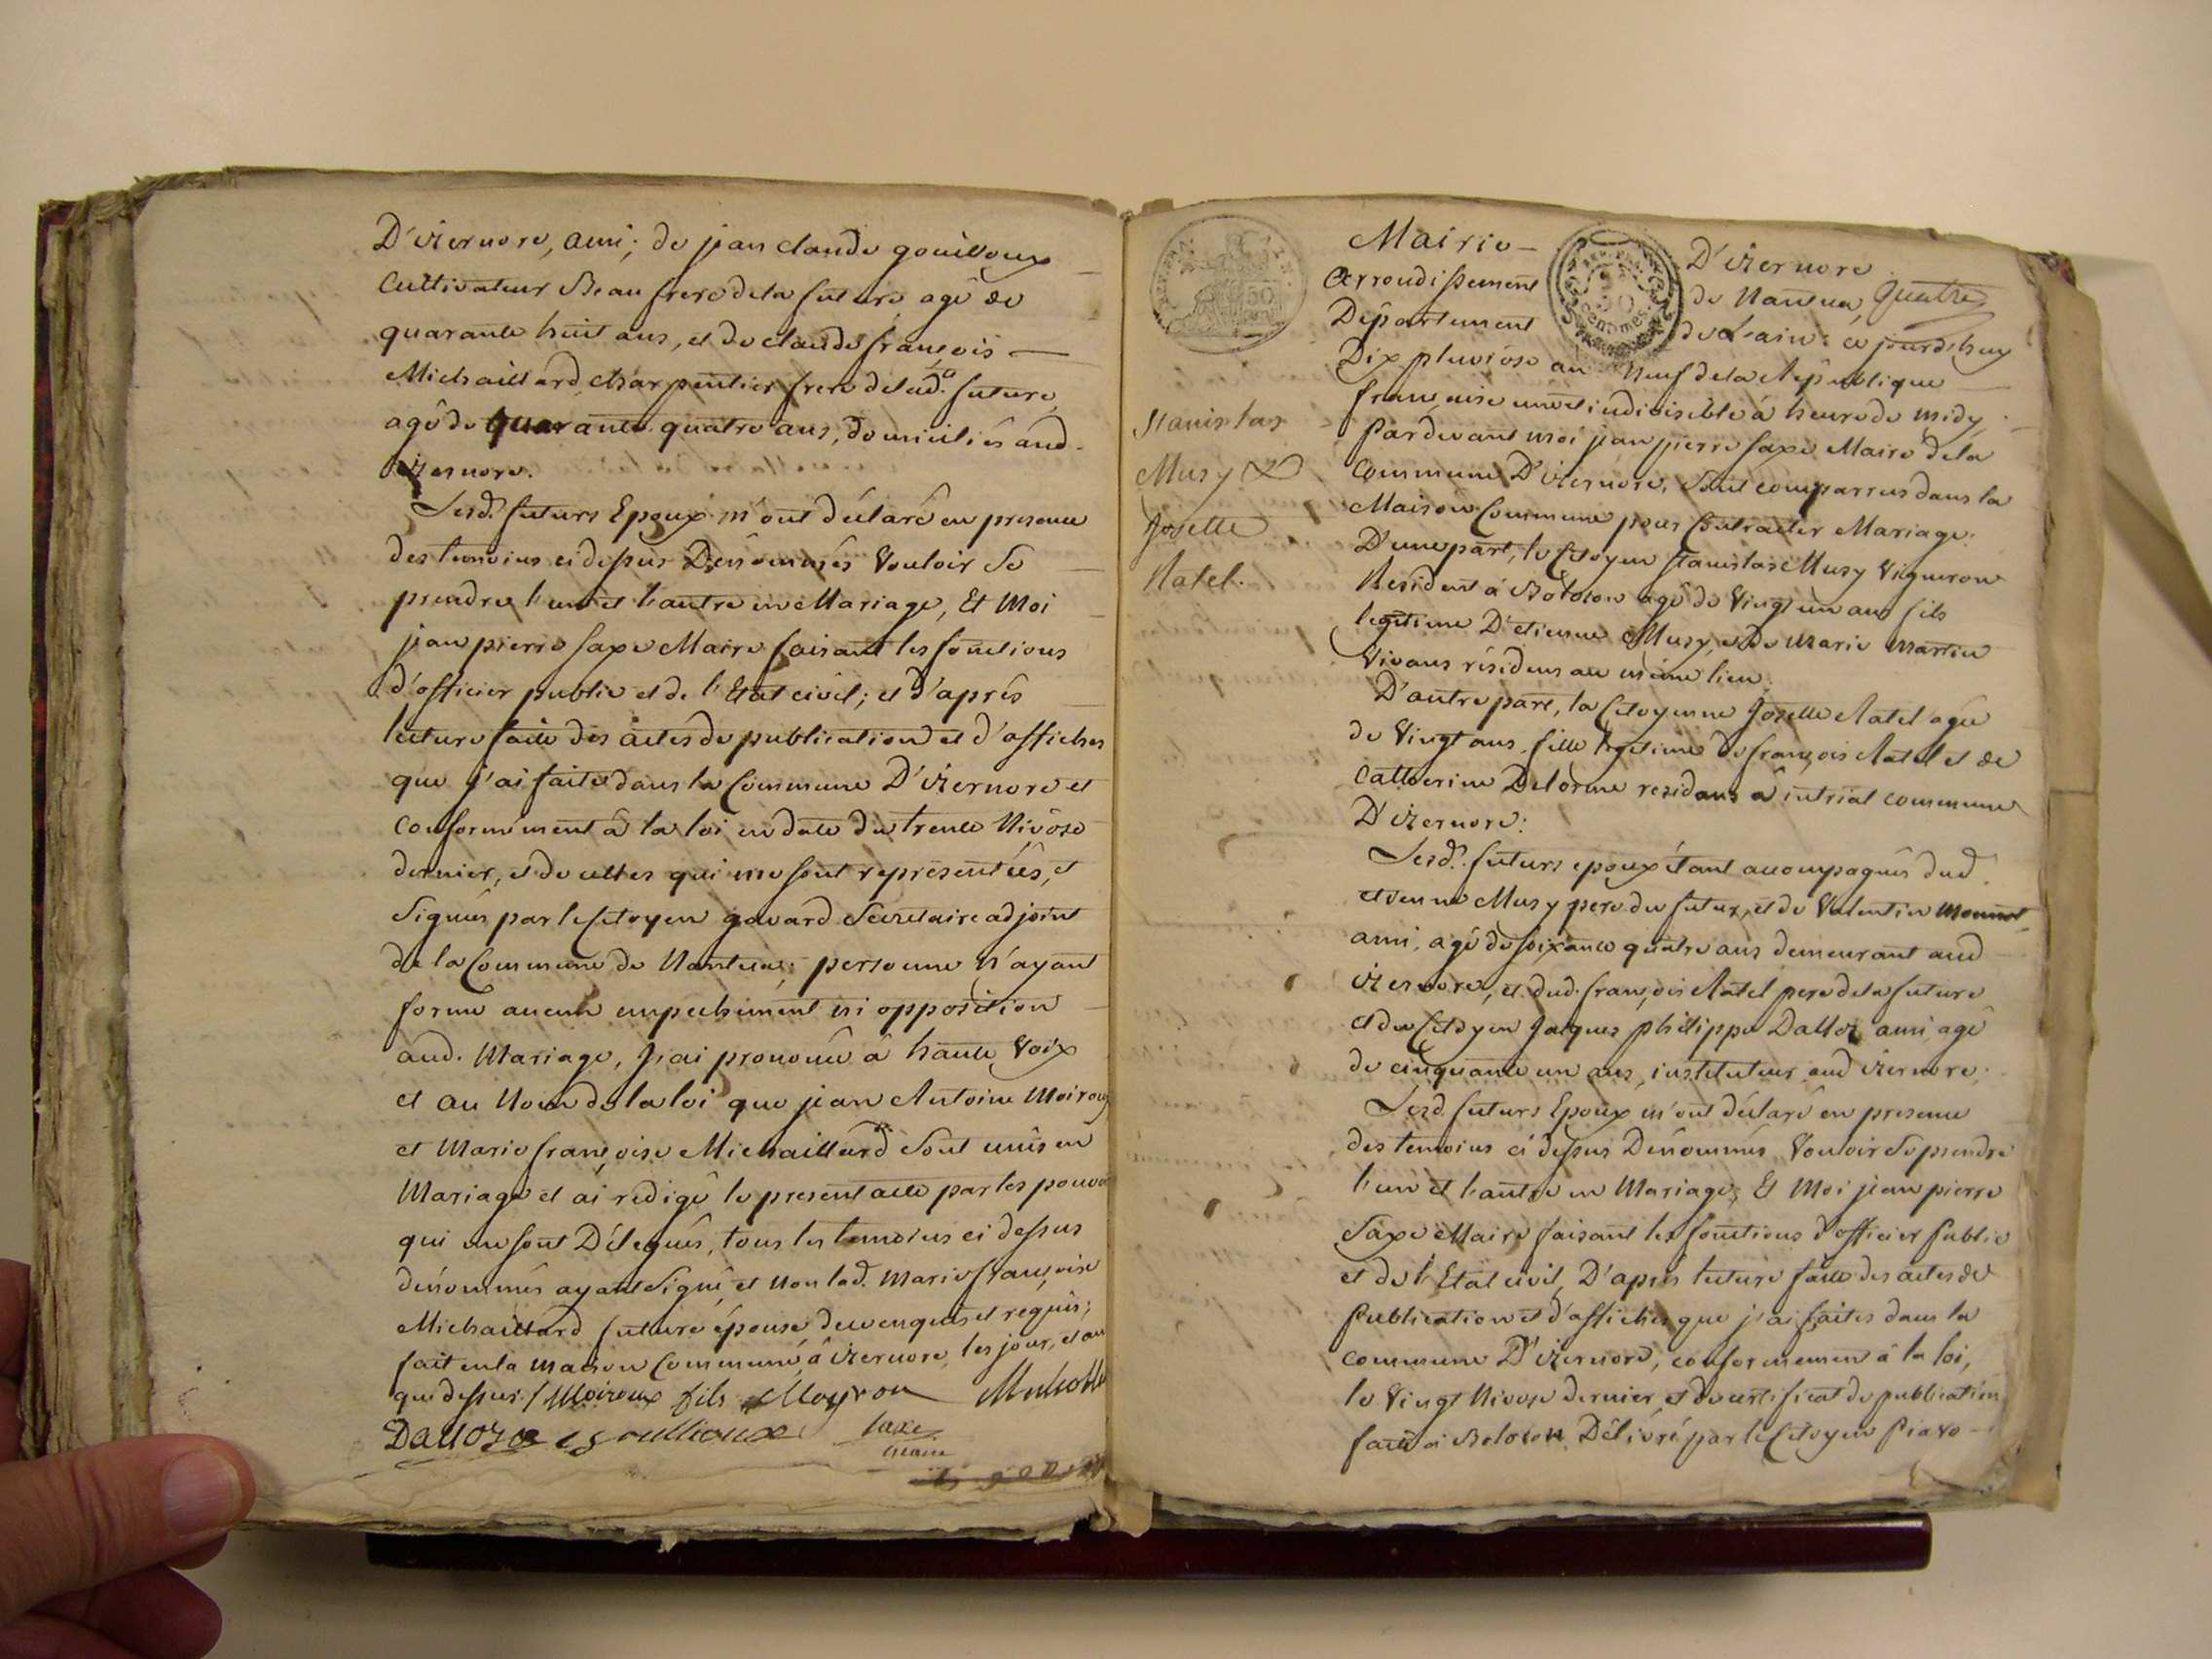 D'izernore, ami; de jean claude gouilloux
Cultivateur Beau frere de la future agé de
quarante huit ans, et de claude françois
Michaillard charpentier frere de lad.e future,
agé de quarante quatre ans, domiciliés aud.
izernore.
Lesd. futurs Epoux m'ont déclaré en presence
des temoins ci dessus Dénommés Vouloir Se
prendre l'un et l'autre en Mariage, Et Moi
jean pierre saxe Maire faisant les fonctions
d'officier public et de l'Etat civil; et d'aprés
lecture faite des actes de publication et d'affiches
que j'ai faite dans la Commune D'izernore et
conformément â la loi en date du trente Nivôse
dernier, et de celles qui me sont représentées, et
Signées par le Citoyen gavard Secretaire adjoint
de la Commune de Nantua; personne n'ayant
formé aucun empechement ni opposition
aud. Mariage, J'ai prononcé â haute Voix
et au Nom de la loi que jean Antoine Moiroux
et Marie françoise Michaillard Sont unis en
Mariage et ai redigé le present acte par les pouvoirs
qui me sont Délegués, tous les temoins ci dessus
dénommés ayant Signé, et non lad. Marie françoise
Michaillard future épouse de ce enquise et requise;
fait en la maison Commune, â izernore, les jour, et an
que dessus. / Moiroux fils Moyron
Dalloz Gouilloux Saxe
maire
Mairie D'izernore
Arrondissement de Nantua, quatre
Département de L'ain: ce jourdhuy
50
centimes
Dix pluviose an Neuf de la République
française une et indivisible â heure de midy,
Pardevant moi jean pierre saxe Maire de la
Commune D'izernore, Sont comparrus dans la
Maison Commune pour Contracter Mariage.
Stanislas
Musy &
Josette
Natel.
D'une part, le Citoyen Stanislas Musy Vigneron
Resident â Bolozon agé de Vingt un ans fils
legitime D'etienne Musy, et de Marie Martin
Vivans résidens au même lieu;
D'autre part, la Citoyenne Josette Natel agée
de Vingt ans, fille legitime de françois Natel et de
Catherine Delorme residans â intriat commune
D'izernore:
Lesd. futurs epoux étant accompagnés dud.
etienne Musy pere du futur, et de Valentin
ami, agé de soixante quatre ans demeurant aud
izernore, et dud. françois Natel pere de la future
et du Citoyen Jacques philippe Dalloz ami agé
de cinquante un ans, instituteur aud izernore.
Lesd. futurs Epoux m'ont déclaré en presence
des temoins ci dessus Dénommés Vouloir Se prendre
l'un et l'autre en Mariage, Et Moi jean pierre
Saxe Maire faisant les fonctions d'officier Public
et de l'Etat civil, D'aprés lecture faite des actes de
Publication et d'affiches que j'ai faites dans la
commune D'izernore, conformement â la loi,
le Vingt Nivose dernier, et du certificat de publication
faite â Bolozon, Délivré par le Citoyen